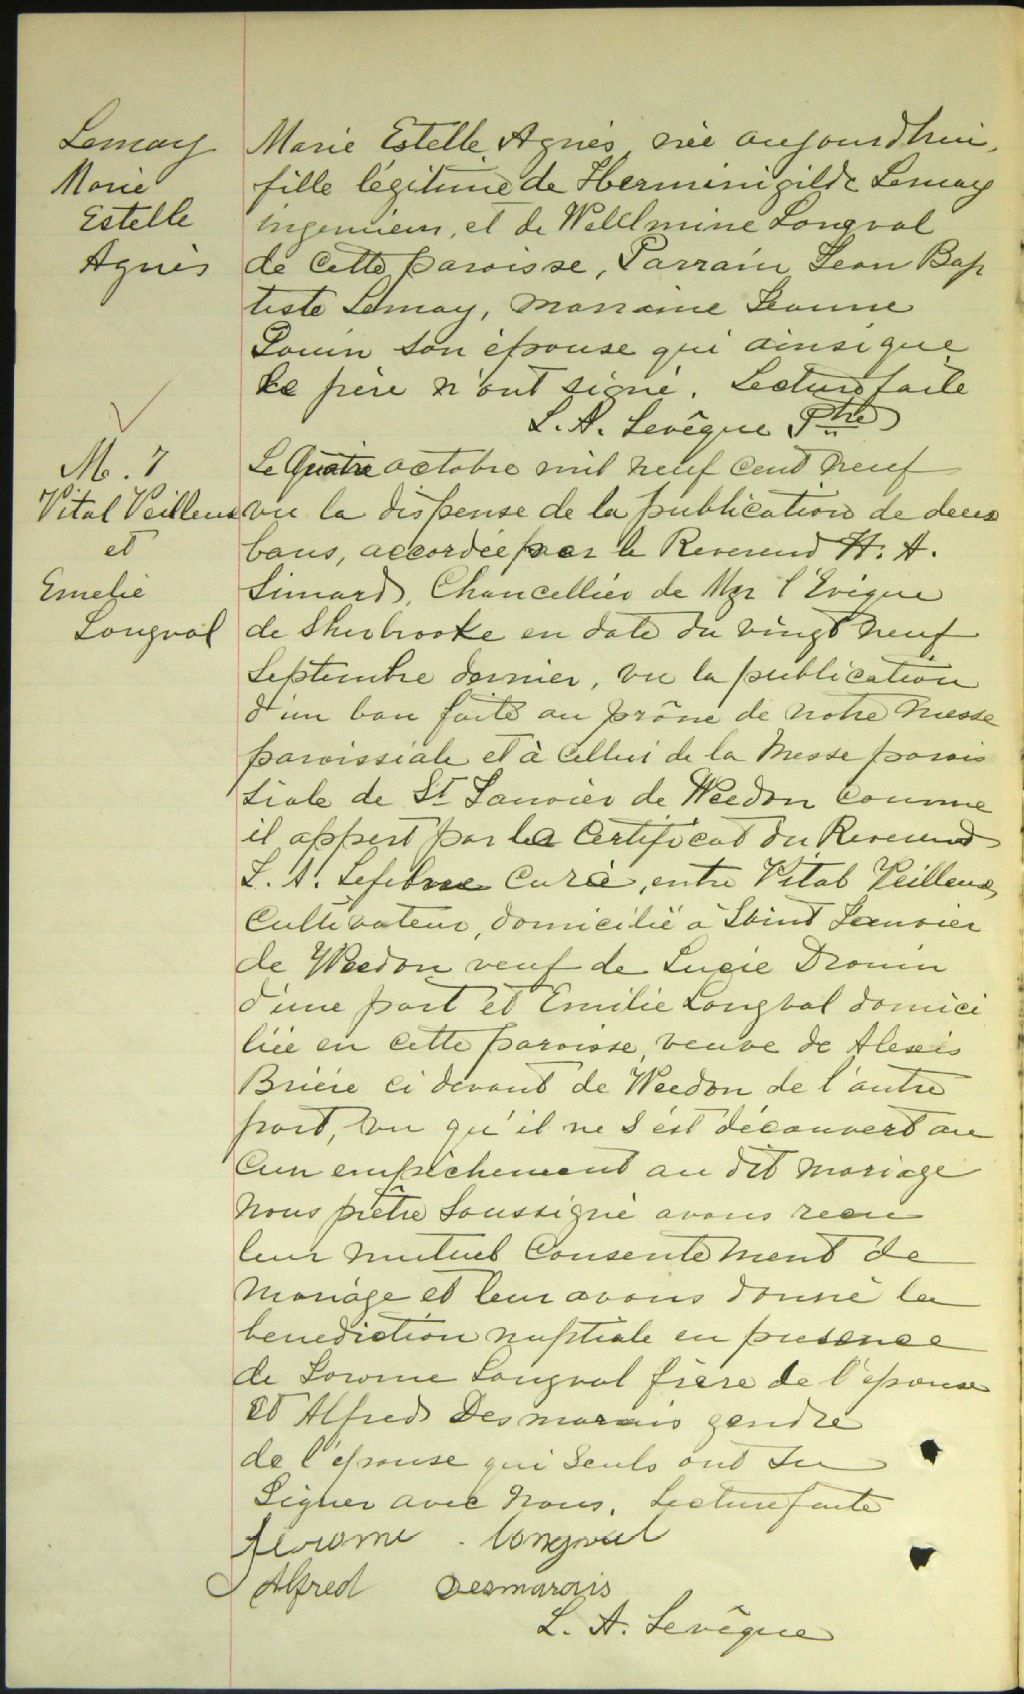 Lemay
Marie
Estelle
Agnès
Marie Estelle Agnès, née aujourdhui,
fille légitime de Herminigilde Lemay
ingenieur, et de Willmine Longval
de cette paroisse, Parrain Jean Bap
tiste Lemay, marraine Jeanne
Pouin son épouse qui ainsi que
le père n'ont signé. Lecture faite
L. A. Levêque Ptre
M. 7
Vital Veilleux
et
Emelie
Longval
Le Quatre octobre mil neuf cent neuf
vu la dispense de la publication de deux
bans, accordée par le Reverend H. A.
Simard, Chancellier de Mgr l'Evèque
de Sherbrooke en date du vingt neuf
Septembre dernier, vu la publication
d'un ban faite au prône de notre messe
paroissiale et à cellui de la Messe parois
siale de St Janvier de Weedon comme
il appert par le Certificat du Reverend
L. A. Lefebvre Curé, entre Vital Veilleux,
Cultivateur, domicilié à Saint Janvier
de Weedon veuf de Lucie Drouin
d'une part et Emilie Longval domici
liée en cette paroisse, veuve de Alexis
Brière ci devant de Weedon de l'autre
part, vu qu'il ne s'est découvert au
cun empêchement au dit mariage
nous prêtre Soussigné avons recu
leur mutuel Consentement de
Mariage et leur avons donné la
benediction nuptiale en presence
de Jorome Longval frère de l'épouse
et Alfred Desmarais gendre
de l'épouse qui seuls ont su
Signer avec nous. Lecture faite
Jerome Longval
Alfred Desmarais
L. A. Levêque